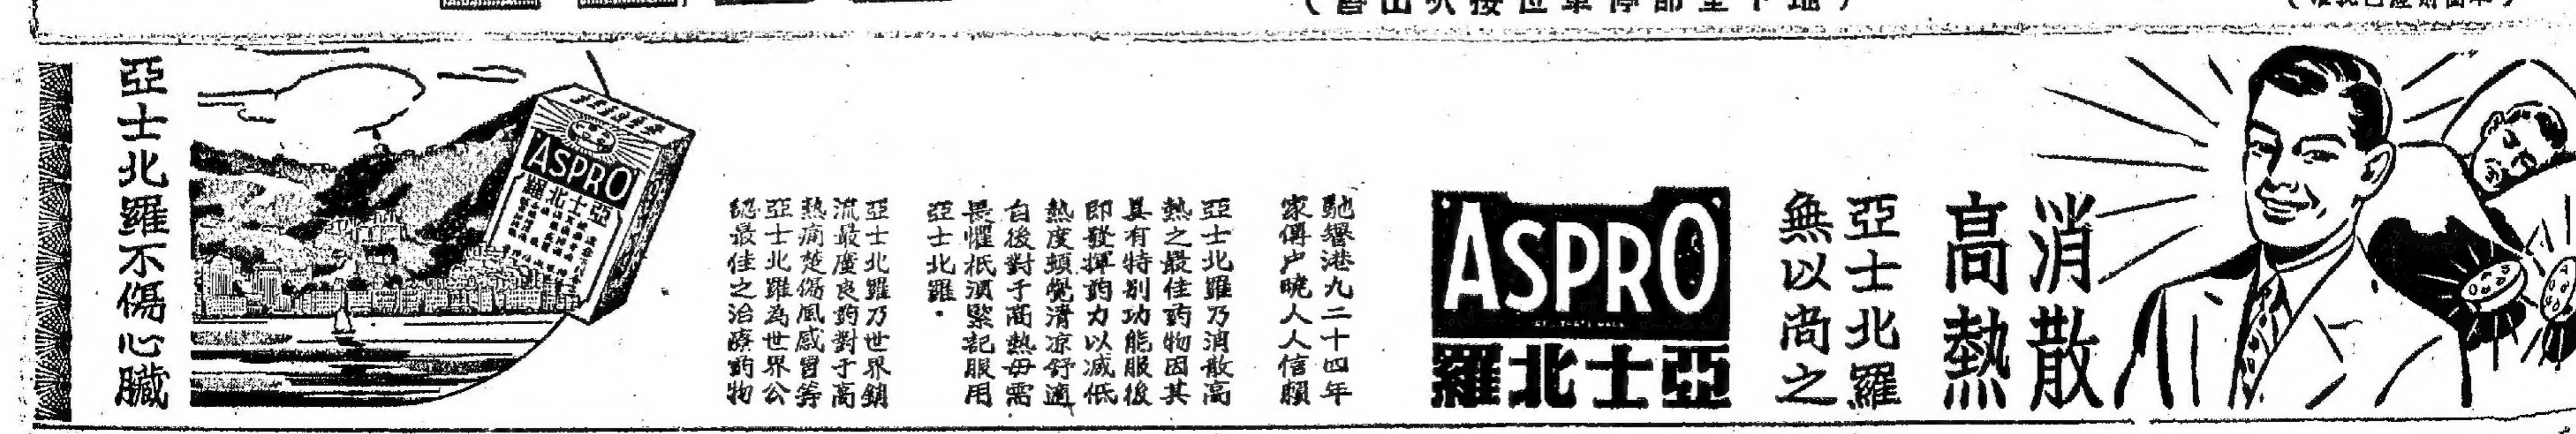 消散
高熱
亞士北羅
無以尚之
ASPRO
羅北士亞
馳譽港九二十四年
家傳户曉人人信賴
亞士北羅乃消散高
熱之最佳药物因其
具有特别功能服後
即發揮药力以减低
熱度頓覺清凉舒適
自後對于高熱毋需
畏懼祗須緊記服用
亞士北羅．
亞士北羅乃世界銷
流最廣良药對于高
熱痛楚傷風感冒等
亞士北羅為世界公
認最佳之治療药物
ASPRO
羅北士亞
亞士北羅不傷心臟